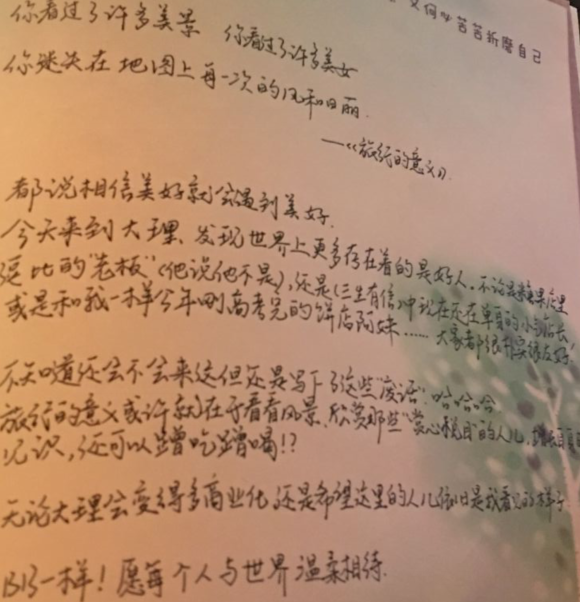 又何必苦苦折磨自己
你看过了许多美景 你看过了许多美女
你迷失在地图上每一次的风和日丽.
——《旅行的意义》.
都说相信美好就会遇到美好.
今天来到大理、发现世界上更多存在着的是好人. 不论是
逗比的“老板”(他说他不是), 还是(三生有信)中现在还在单身的小店长,
或是和我一样今年刚高考完的饼店阿妹…… 大家都很友好
不知道还会不会来这但还是写下了这些“废话”. 哈哈哈.
旅行的意义或许就在于看看风景、欣赏那些“赏心悦目”的人儿, 增长
见识, 还可以蹭吃蹭喝!?
无论大理会变得多商业化, 还是希望这里的人儿依旧是我看见的样子.
一样! 愿每个人与世界温柔相待.